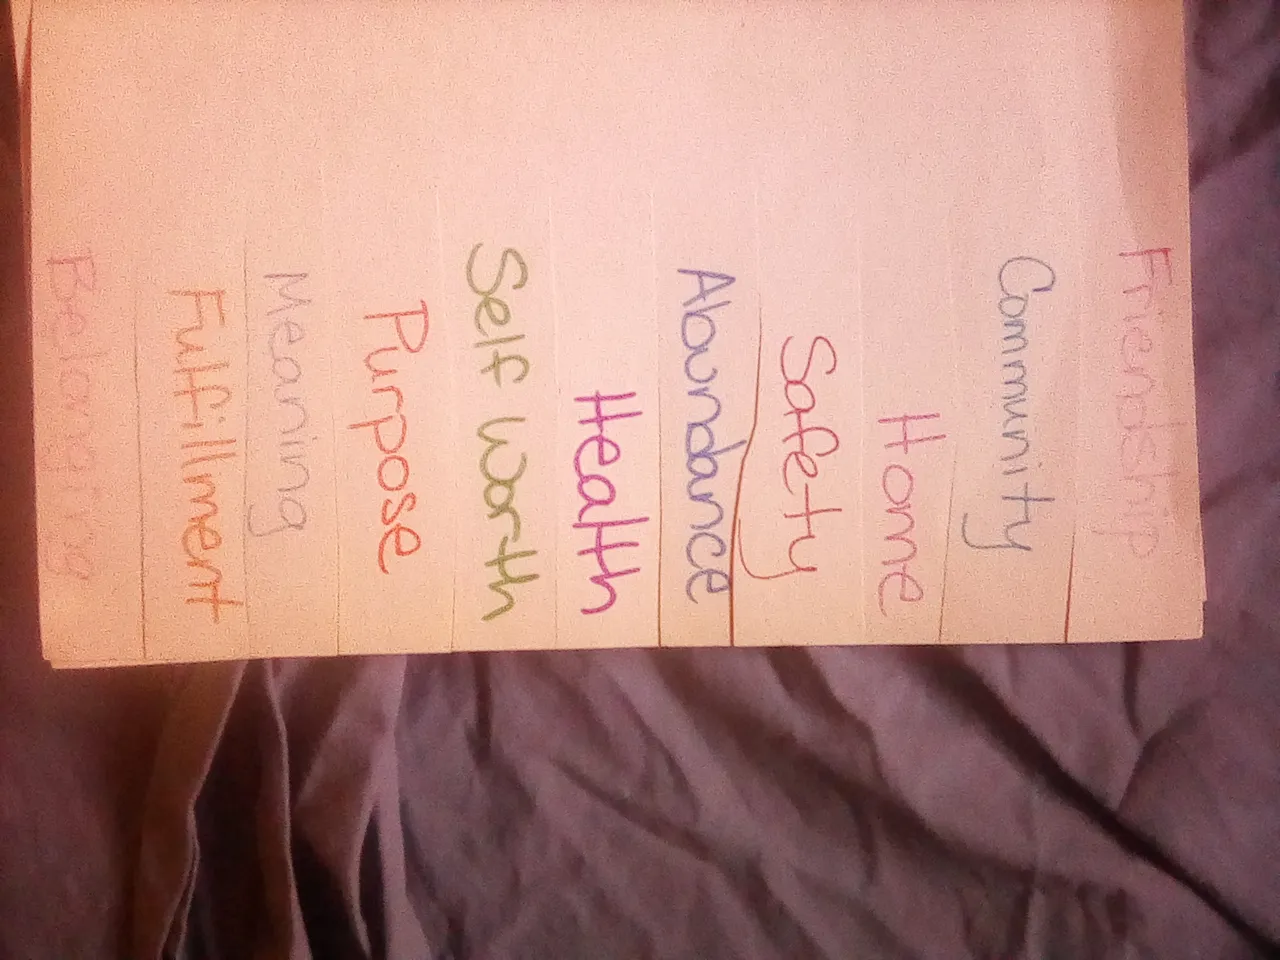 Friendship
Community
Home
Safety
Abundance
Health
Self Worth
Purpose
Meaning
Fulfillment
Belonging